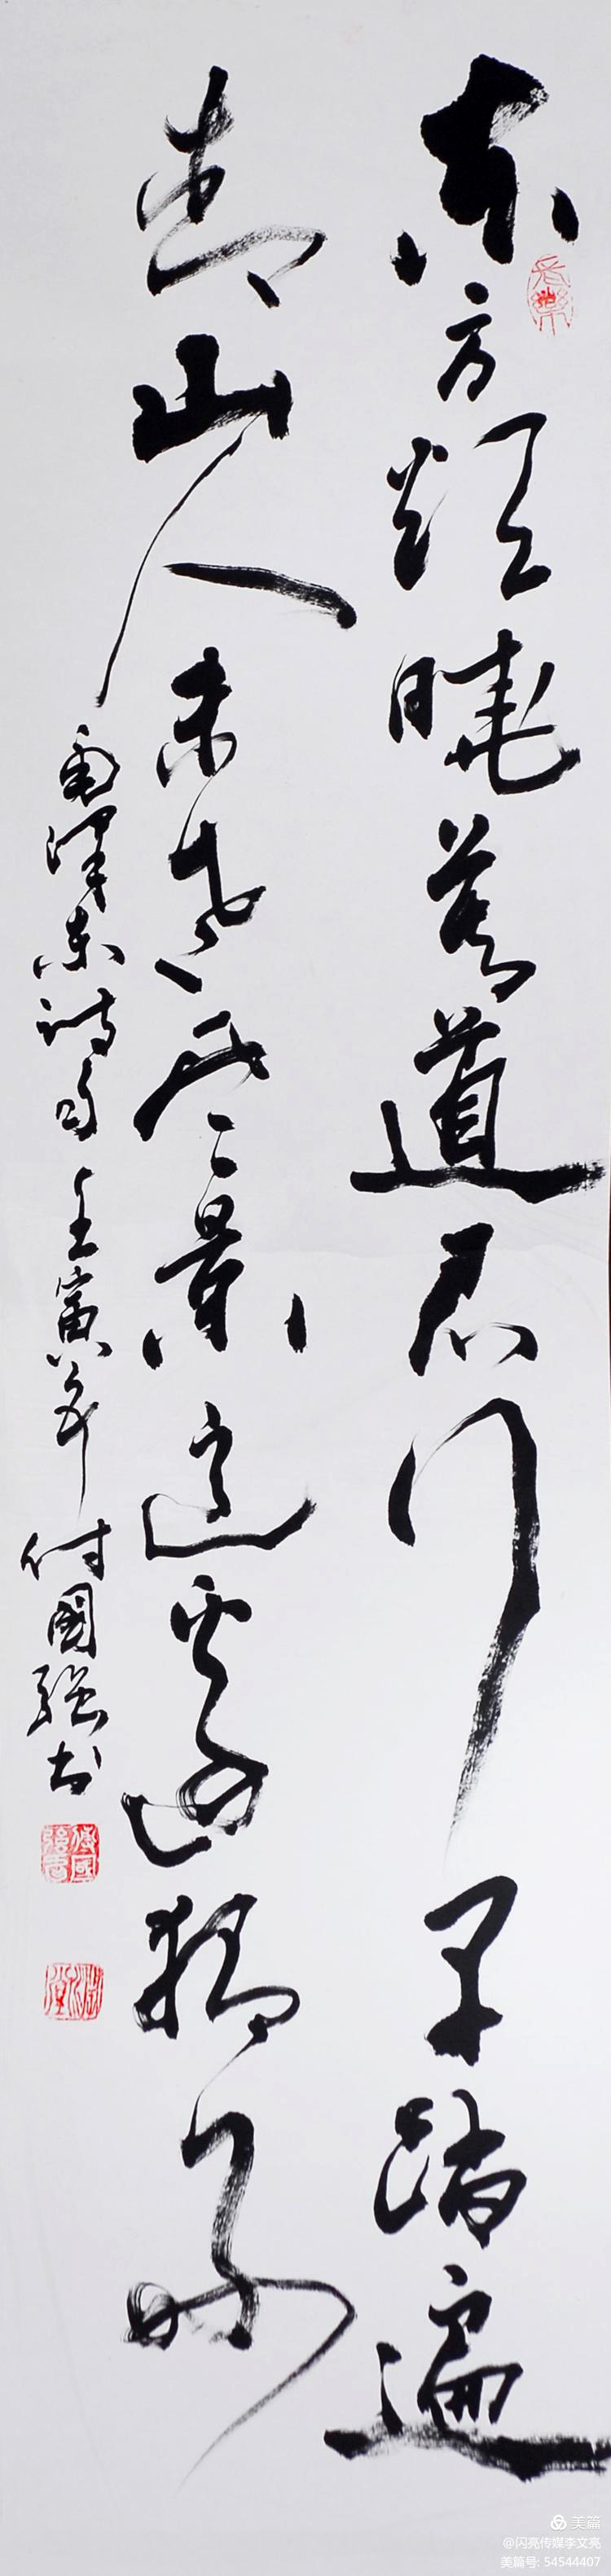 东方欲晓莫道君行早踏遍
青山人未老风景这边独好
毛泽东诗句 壬寅年 付國强书
美篇
@闪亮传媒李文亮
美篇号: 54544407